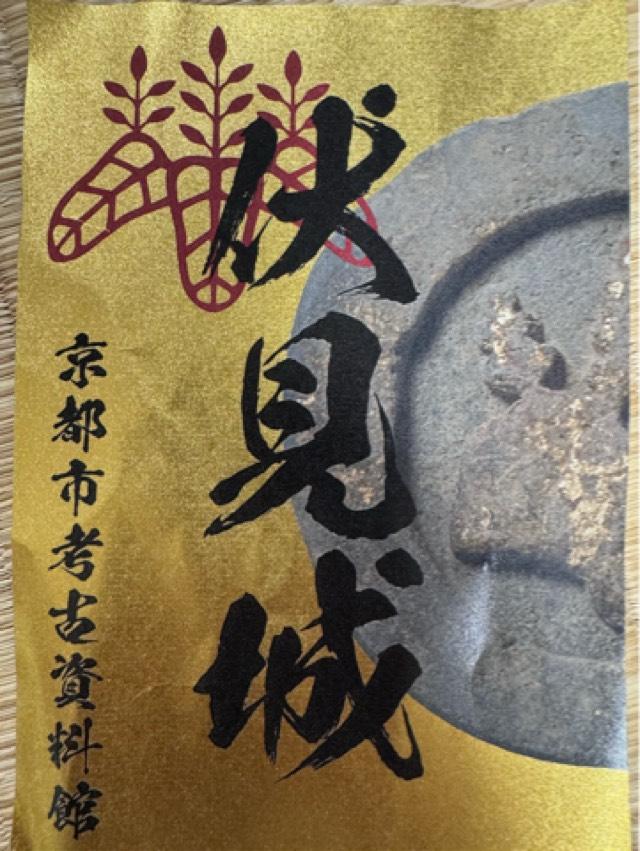 伏見城
京都市考古資料館